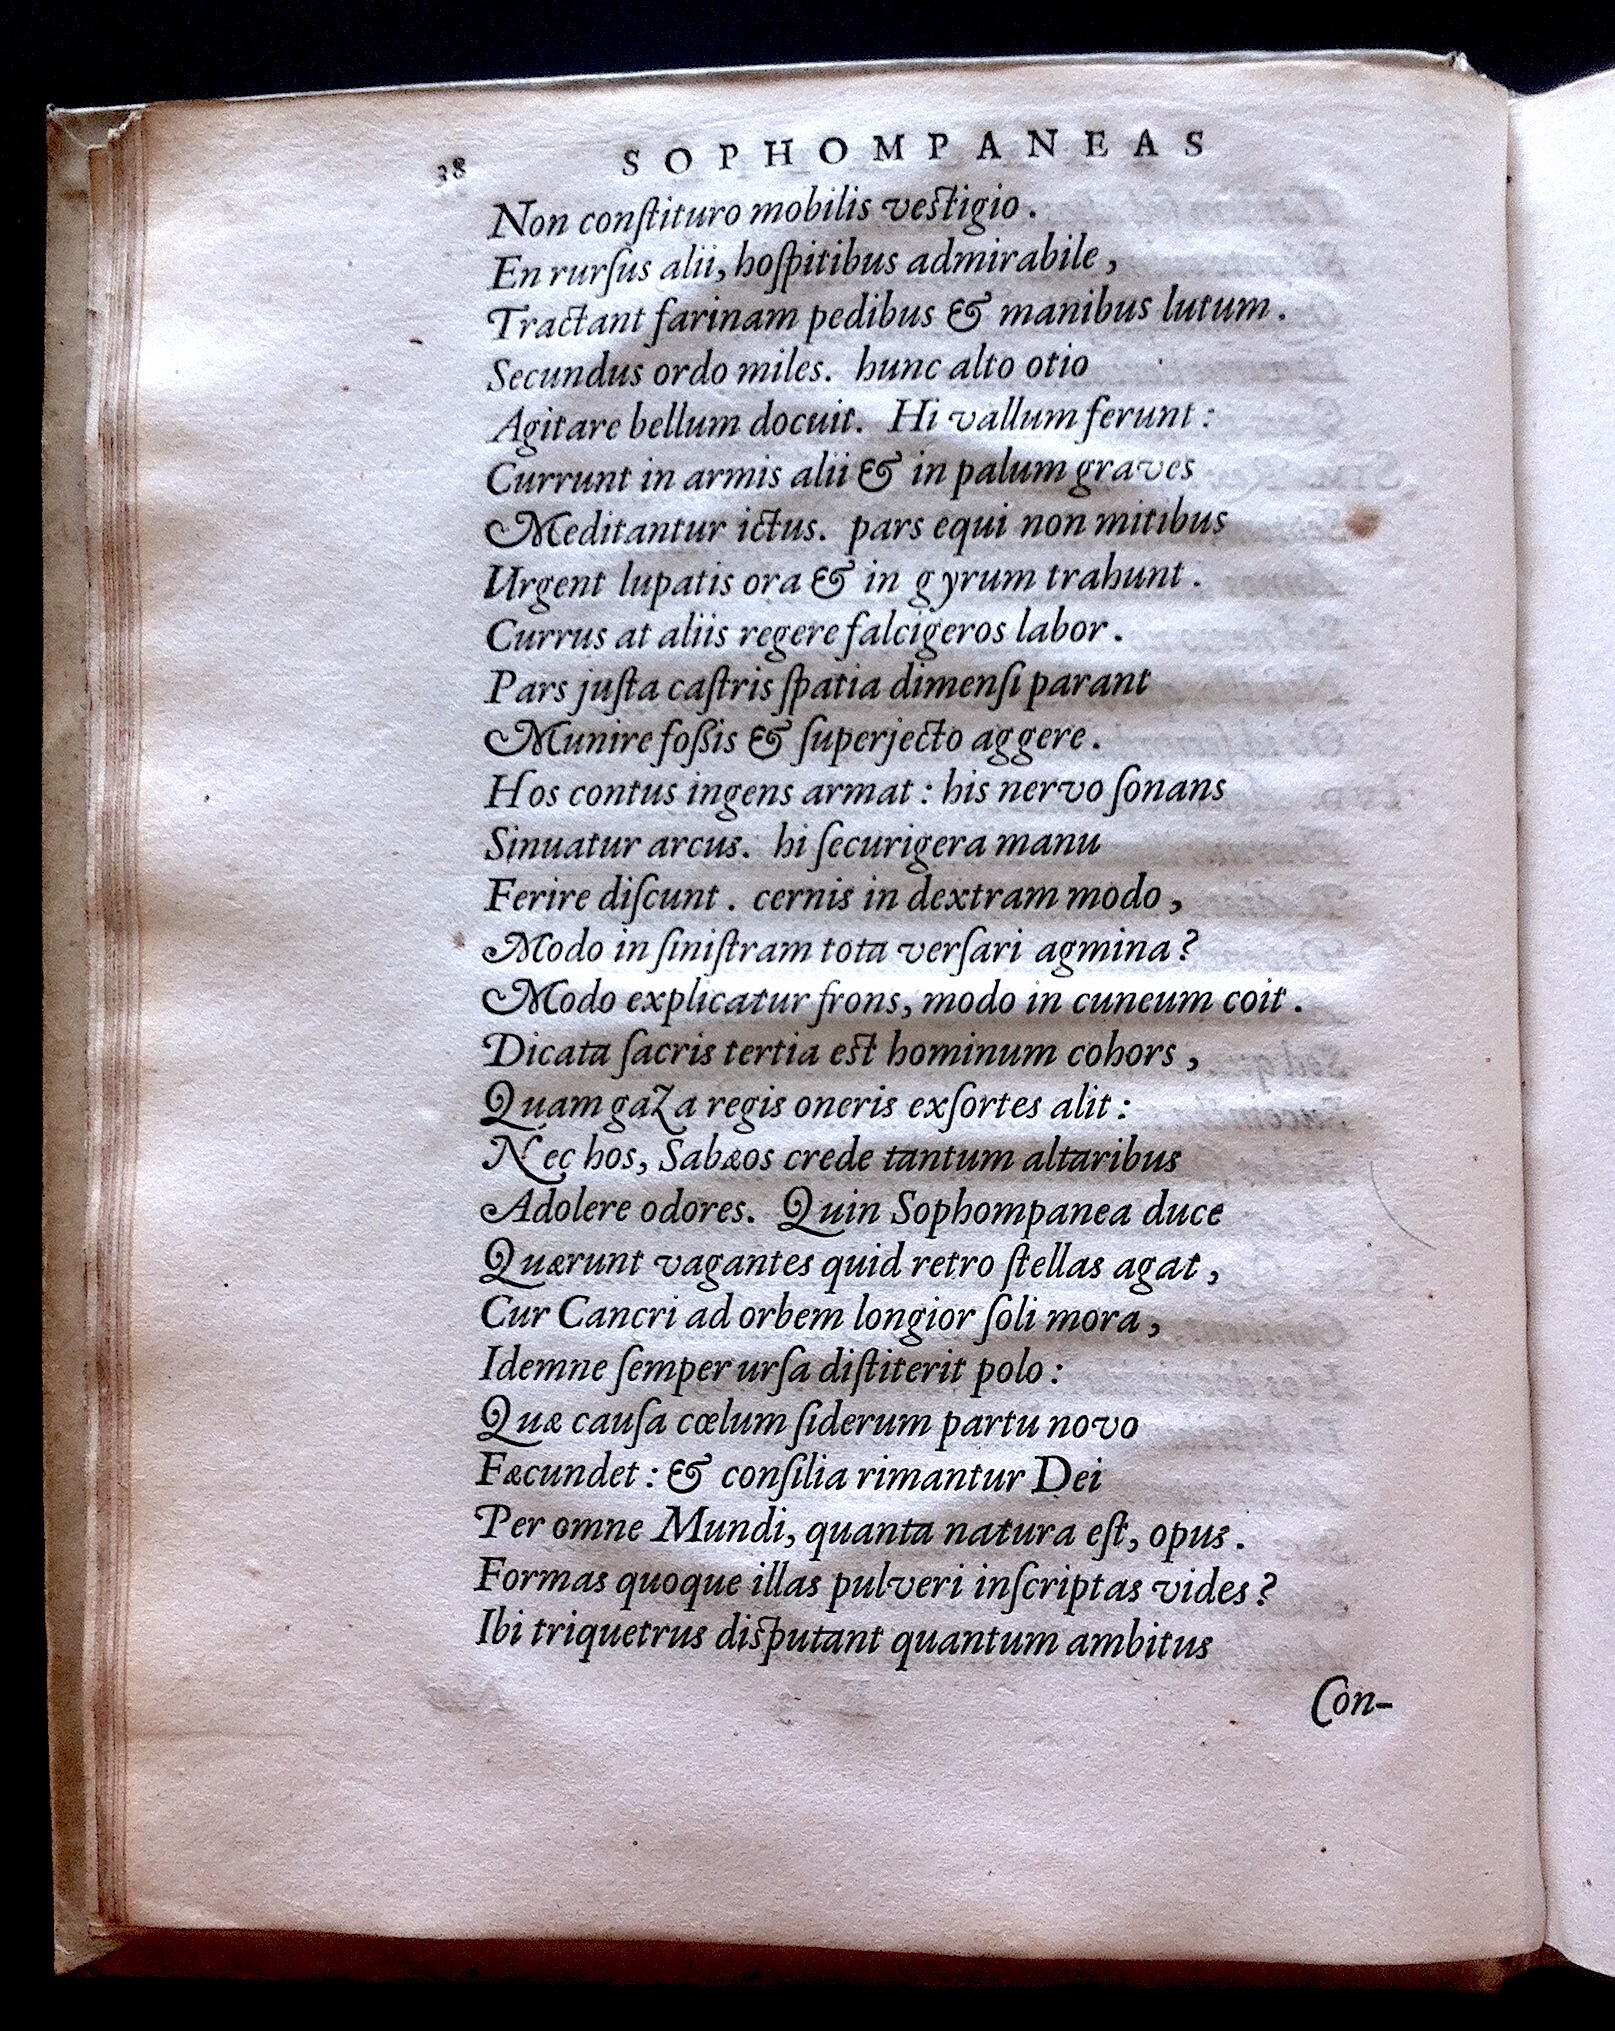 38 SOPHOMPANEAS
Non conſtituro mobilis veſtigio.
En rurſus alii, hoſpitibus admirabile,
Tractant farinam pedibus & manibus lutum.
Secundus ordo miles. hunc alto otio
Agitare bellum docuit. Hi vallum ferunt:
Currunt in armis alii & in palum graves
Meditantur ictus. pars equi non mitibus
Urgent lupatis ora & in gyrum trahunt.
Currus at aliis regere falcigeros labor.
Pars juſta caſtris ſpatia dimenſi parant
Munire foſſis & ſuperjecto aggere.
Hos contus ingens armat: his nervo ſonans
Sinuatur arcus. hi ſecurigera manu
Ferire diſcunt. cernis in dextram modo,
Modo in ſiniſtram tota verſari agmina?
Modo explicatur frons, modo in cuneum coit.
Dicata ſacris tertia eſt hominum cohors,
Quam gaza regis oneris exſortes alit:
Nec hos, Sabæos crede tantum altaribus
Adolere odores. Quin Sophompanea duce
Quærunt vagantes quid retro ſtellas agat,
Cur Cancri ad orbem longior ſoli mora,
Idemne ſemper urſa diſtiterit polo:
Quæ cauſa cœlum ſiderum partu novo
Fæcundet: & conſilia rimantur Dei
Per omne Mundi, quanta natura eſt, opus.
Formas quoque illas pulveri inſcriptas vides?
Ibi triquetrus diſputant quantum ambitus
Con-